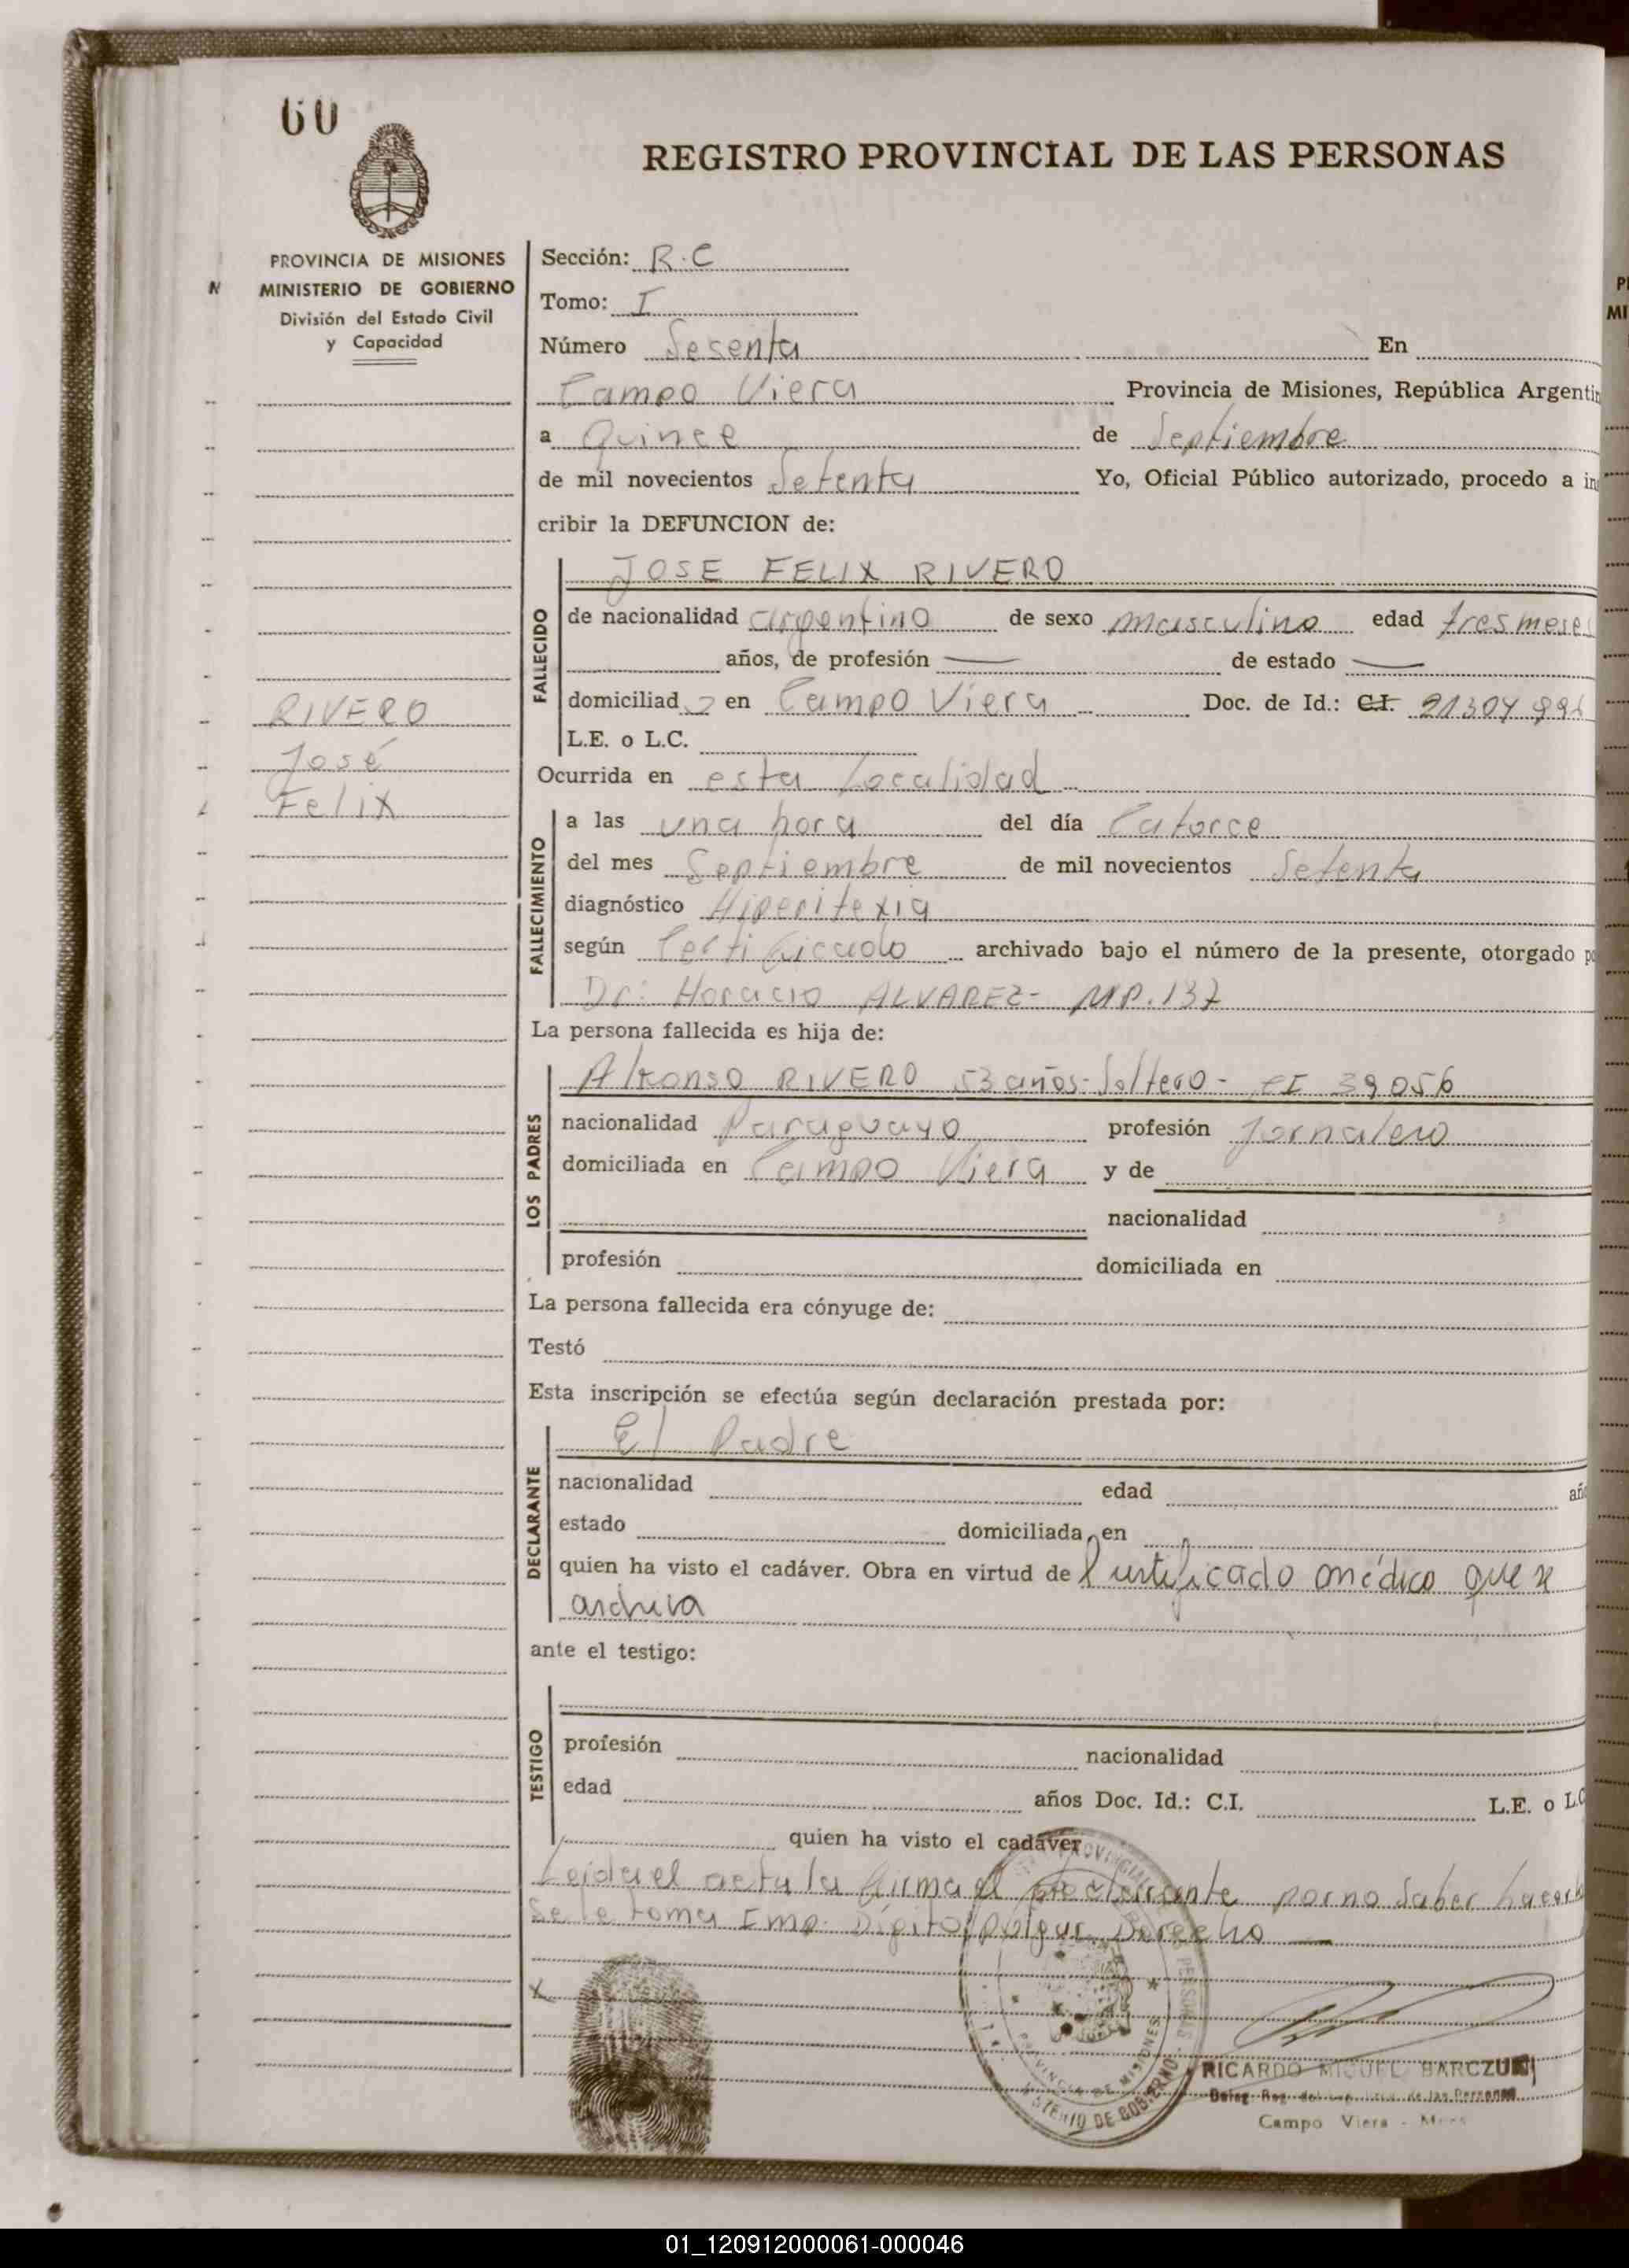 60
REGISTRO PROVINCIAL DE LAS PERSONAS
PROVINCIA DE MISIONES
MINISTERIO DE GOBIERNO
División del Estado Civil
y Capacidad
Sección: R.C
Tomo: I
Número Sesenta En
Campo Viera Provincia de Misiones, República Argentin
a Quince de Septiembre
de mil novecientos Setenta Yo, Oficial Público autorizado, procedo a in
cribir la DEFUNCION de:
FALLECIDO
JOSE FELIX RIVERO
de nacionalidad argentino de sexo masculino edad tres meses
años, de profesión — de estado —
RIVERO
José
Felix
domiciliad o en Campo Viera Doc. de Id.: C.I. 21.304
L.E. o L.C.
Ocurrida en esta Localidad
FALLECIMIENTO
a las una hora del día Catorce
del mes Septiembre de mil novecientos Setenta
diagnóstico
según Certificado archivado bajo el número de la presente, otorgado po
Dr: Horacio ALVAREZ- MP. 137
La persona fallecida es hija de:
LOS PADRES
RIVERO 53 años- Soltero- CI 39056
nacionalidad Paraguayo profesión Jornalero
domiciliada en Campo Viera y de
nacionalidad
profesión domiciliada en
La persona fallecida era cónyuge de:
Testó
Esta inscripción se efectúa según declaración prestada por:
DECLARANTE
El Padre
nacionalidad edad añ
estado domiciliada en
quien ha visto el cadáver. Obra en virtud de Certificado médico que se
archiva
ante el testigo:
TESTIGO
profesión nacionalidad
edad años Doc. Id.: C.I. L.E. o L.C
quien ha visto el cadáver
Leida el acta la firma el declarante por no saber hacerlo
Se le toma Imp. Digito pulgar Derecho —
x
PROVINCIA DE MISIONES
RICARDO MIGUEL BARCZUK
Campo Viera - Mnes
01_120912000061-000046